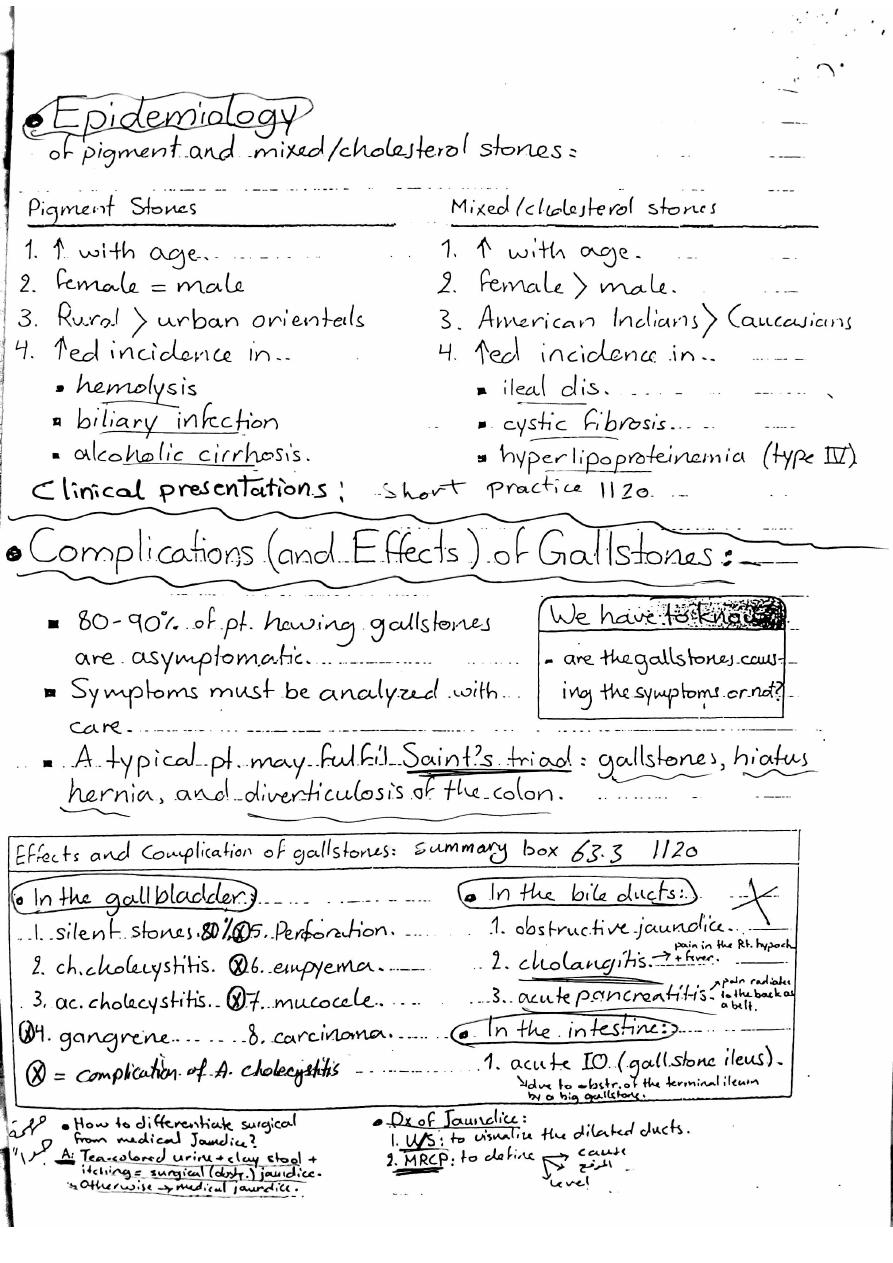 • Epidemiology
of pigment and mixed/cholesterol stones:
Pigment Stones
1. ↑ with age.
2. female = male
3. Rural > urban orientals
4. ↑ed incidence in..
▪ hemolysis
▪ biliary infection
▪ alcoholic cirrhosis.
Mixed/cholesterol stones
1. ↑ with age.
2. female > male.
3. American Indians > Caucasians
4. ↑ed incidence in..
▪ ileal dis.
▪ cystic fibrosis.
▪ hyperlipoproteinemia (type IV)
Clinical presentations: short practice 1120.
• Complications (and Effects) of Gallstones:
▪ 80-90% of pt. having gallstones
are asymptomatic.
▪ Symptoms must be analyzed with
care.
We have to know
- are the gallstones caus-
ing the symptoms or not?
▪ A typical pt. may fulfil Saint's triad: gallstones, hiatus
hernia, and diverticulosis of the colon.
Effects and Complication of gallstones: summary box 63.3 1120
• In the gallbladder:
1. silent stones. 80%
2. ch. cholecystitis.
3. ac. cholecystitis.
ⓧ4. gangrene
ⓧ5. Perforation.
ⓧ6. empyema.
ⓧ7. mucocele.
8. carcinoma.
ⓧ = complication of A. cholecystitis
• In the bile ducts:
1. obstructive jaundice.
2. cholangitis. → pain in the Rt. hypoch
+ fever.
3. acute pancreatitis. → pain radiates
to the back as
a belt.
• In the intestine:
1. acute IO (gallstone ileus).
↳ due to obstr. of the terminal ileum
by a big gallstone.
• How to differentiate surgical
from medical Jaundice?
A: Tea-colored urine + clay stool +
itching = surgical (obstr.) jaundice.
↳ Otherwise → medical jaundice.
• Dx of Jaundice:
1. U/S: to visualize the dilated ducts.
2. MRCP: to define → cause
level